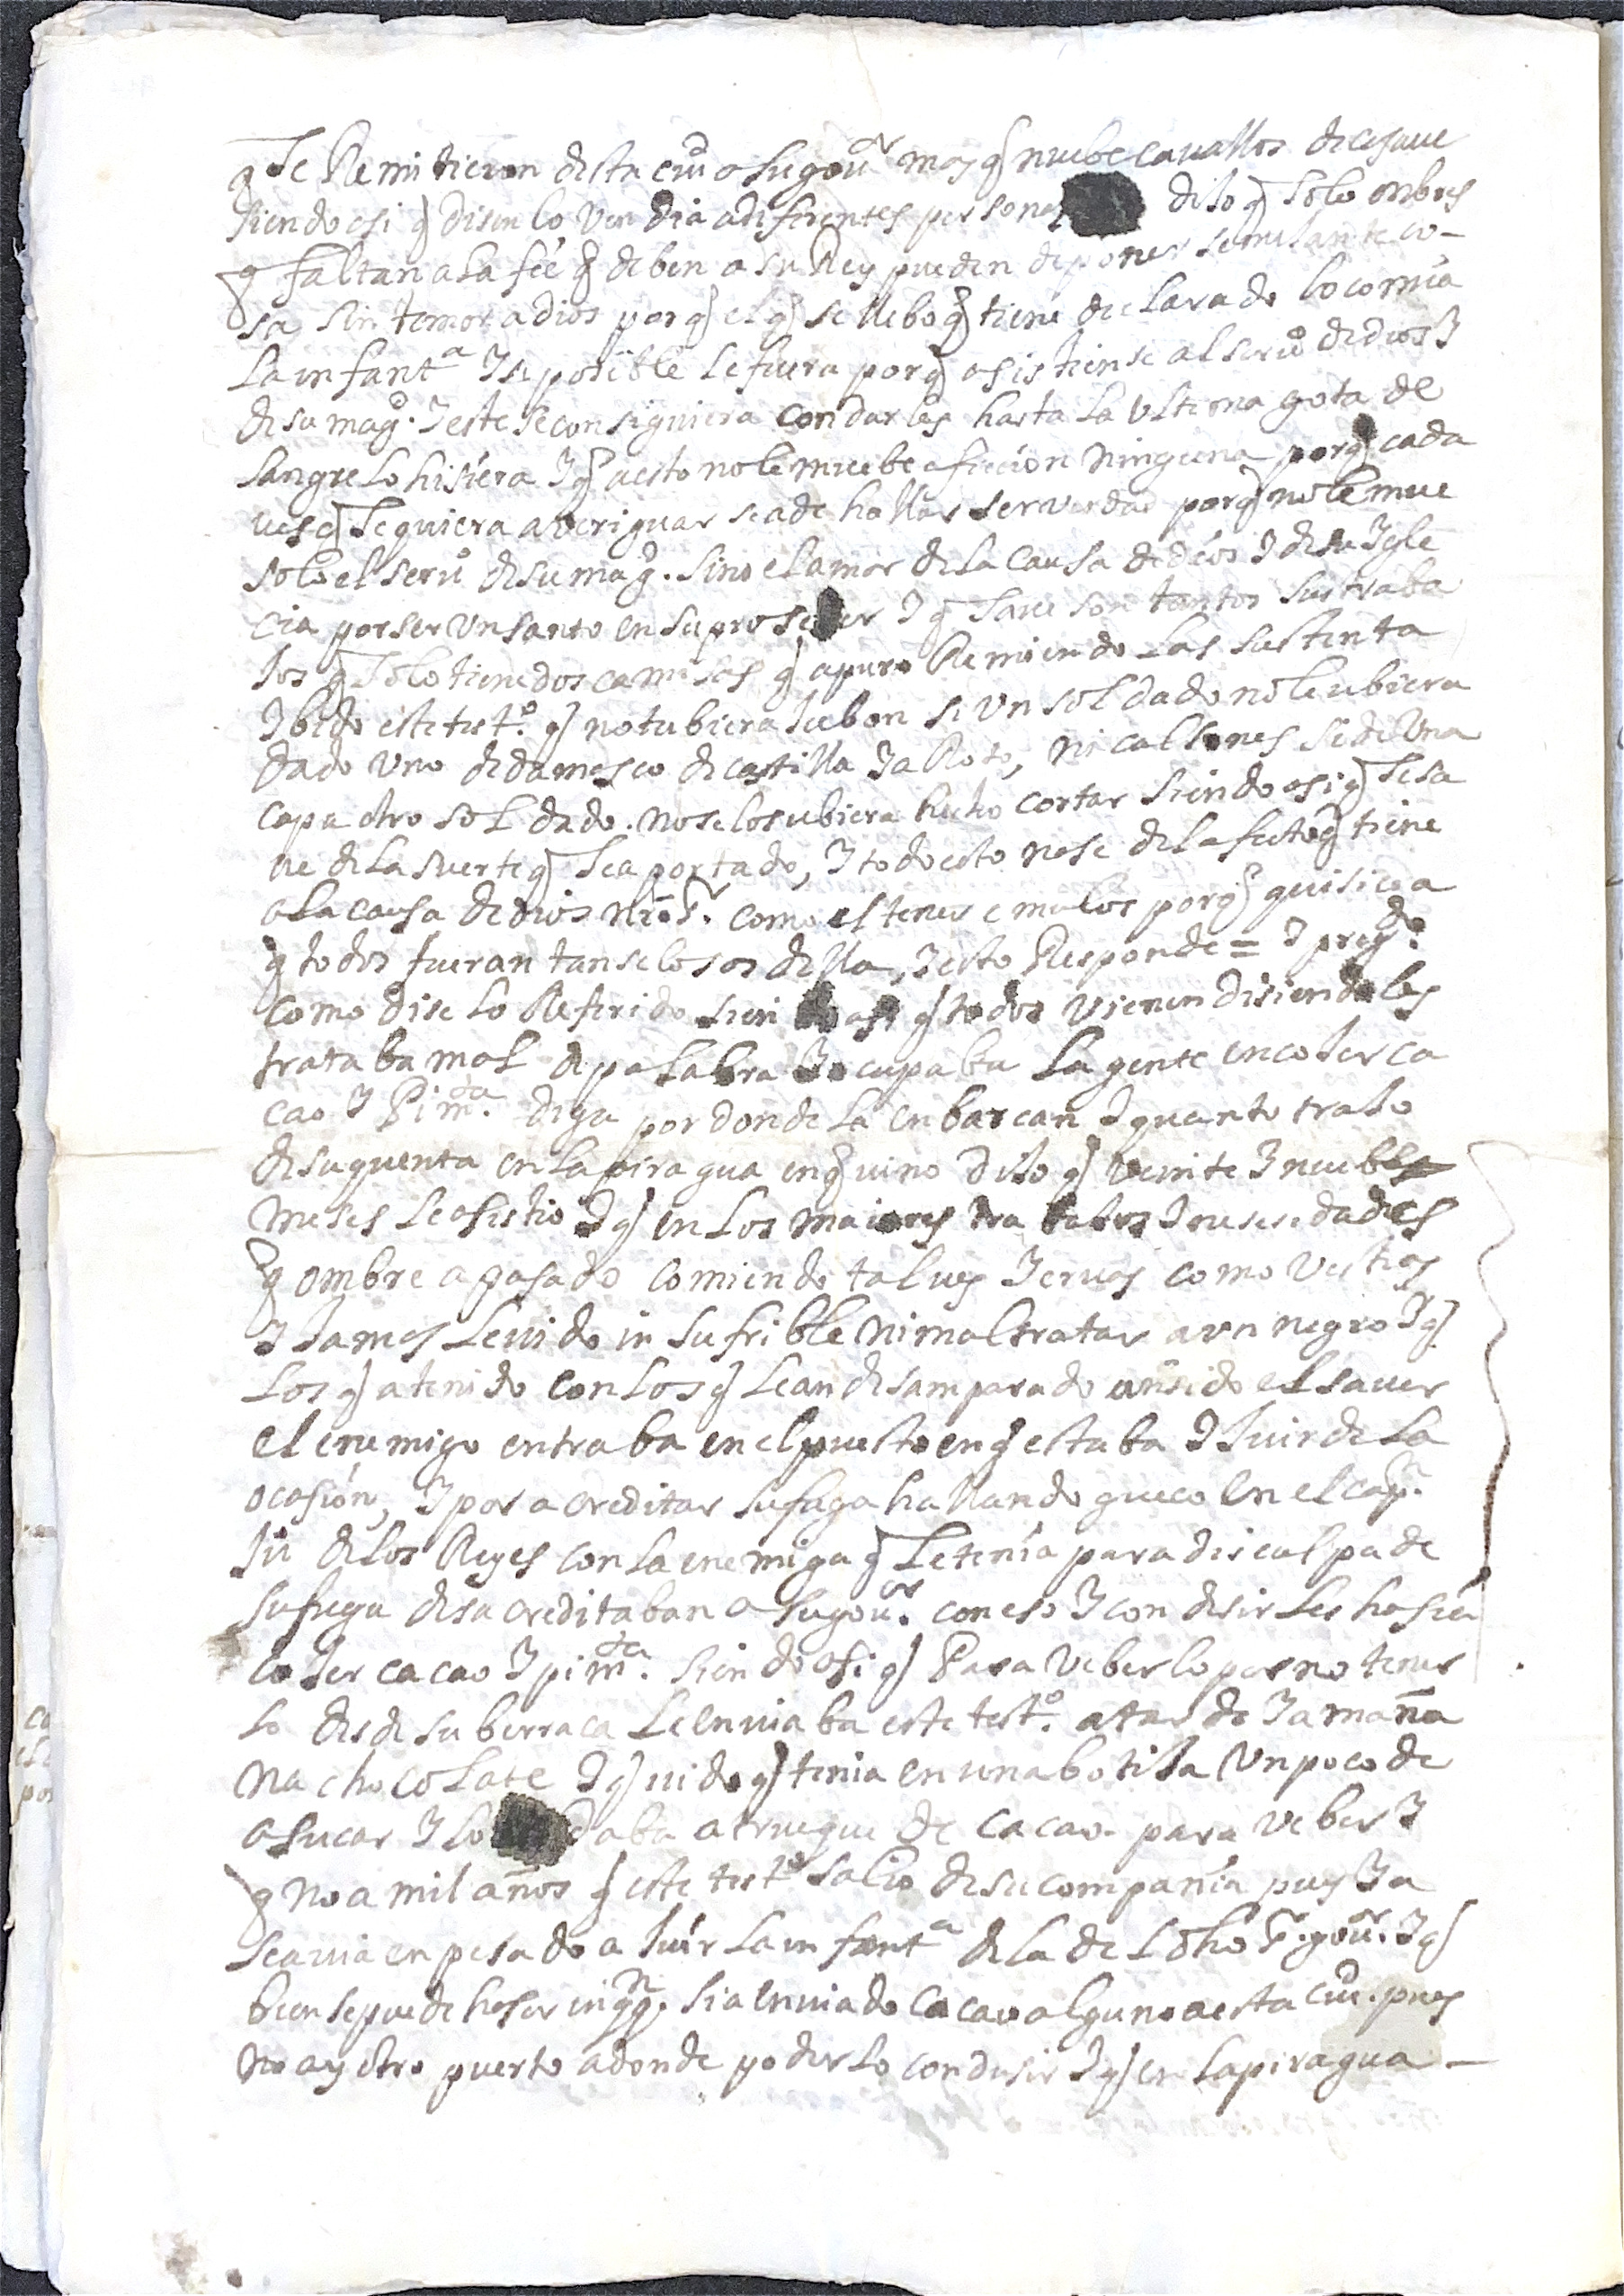 q se Remitieron desta ciud a su gour mas q nuebe cavallos dice save
siendo asi q disen lo vendia a diferentes personas dijo q solo onbres
q faltan a la fée q deben a su Rey pueden deponer semejante co-
sa sin temor a dios porq el q se llebo q tiene declarado lo comia
la infanta I si posible le fuera porq asistiense al seruo de dios I
de su magd. I este se consiguiera con darles hasta la ultima gota de
sangre lo hisiera I q a esto no le muebe aficion ninguna porq cada
ves q se quiera averiguar se a de hallar ser verdad porq no le mue
solo el seruo de su magd. sino el amor de la causa de dios I de su Igle
cia por ser un santo en su proseder I q save son tantos sus traba
jos q solo tiene dos camisas q a puro Remiendo las sustenta
I bido este testo. q no tubiera jubon si un soldado no le ubiera
dado uno de damasco de castilla Ia Roto, ni calsones si de una
capa otro soldado. no se los ubiera hecho cortar siendo asi q se sa
ve de la suerte q se a portado, I todo esto nase del afecto q tiene
a la causa de dios nro sr. como el tener emulos porq quisiera
q todos fueran tan selosos della, I esto Responde = I pregdo.
como dise lo Referido siendo asi q todos vienen disiendo les
trataba mal de palabra I ocupaba la gente en cojer ca
cao I Pimta. diga por donde la enbarcan I quanto trajo
de su quenta en la piragua en q vino dijo q veinte I nuebe
meses le asistio I q en los maiores trabajos I nesesidades
q ombre a pasado comiendo tal ves Iervas como vestias
I jamas le vido in sufrible ni maltratar a un negro I q
los q a tenido con los q le an desamparado an sido el saver
el enemigo entraba en el puesto en q estaba I huir de la
ocasión, I por acreditar su fuga hallando gueco en el capn.
Ju de los Reyes con la enemiga q le tenia para disculpa de
su fuga desacreditaban a su gour. con eso I con desir les hasia
cojer cacao I pimta. siendo asi q Para veberlo por no tener
lo desde su barraca le enviaba este testo. a tarde I a maña
na chocolate I q vido q tenia en una botija un poco de
asucar I lo daba a trueque de cacao para veber I
q no a mil años q este testo salio de su compañia pues Ia
se avia enpesado a huir la infanta de la de dho sr. gour. I q
bien se puede haser inqqn. si a enviado cacao alguno a esta ciud. pues
no ay otro puerto a donde poderlo condusir I q en la piragua -